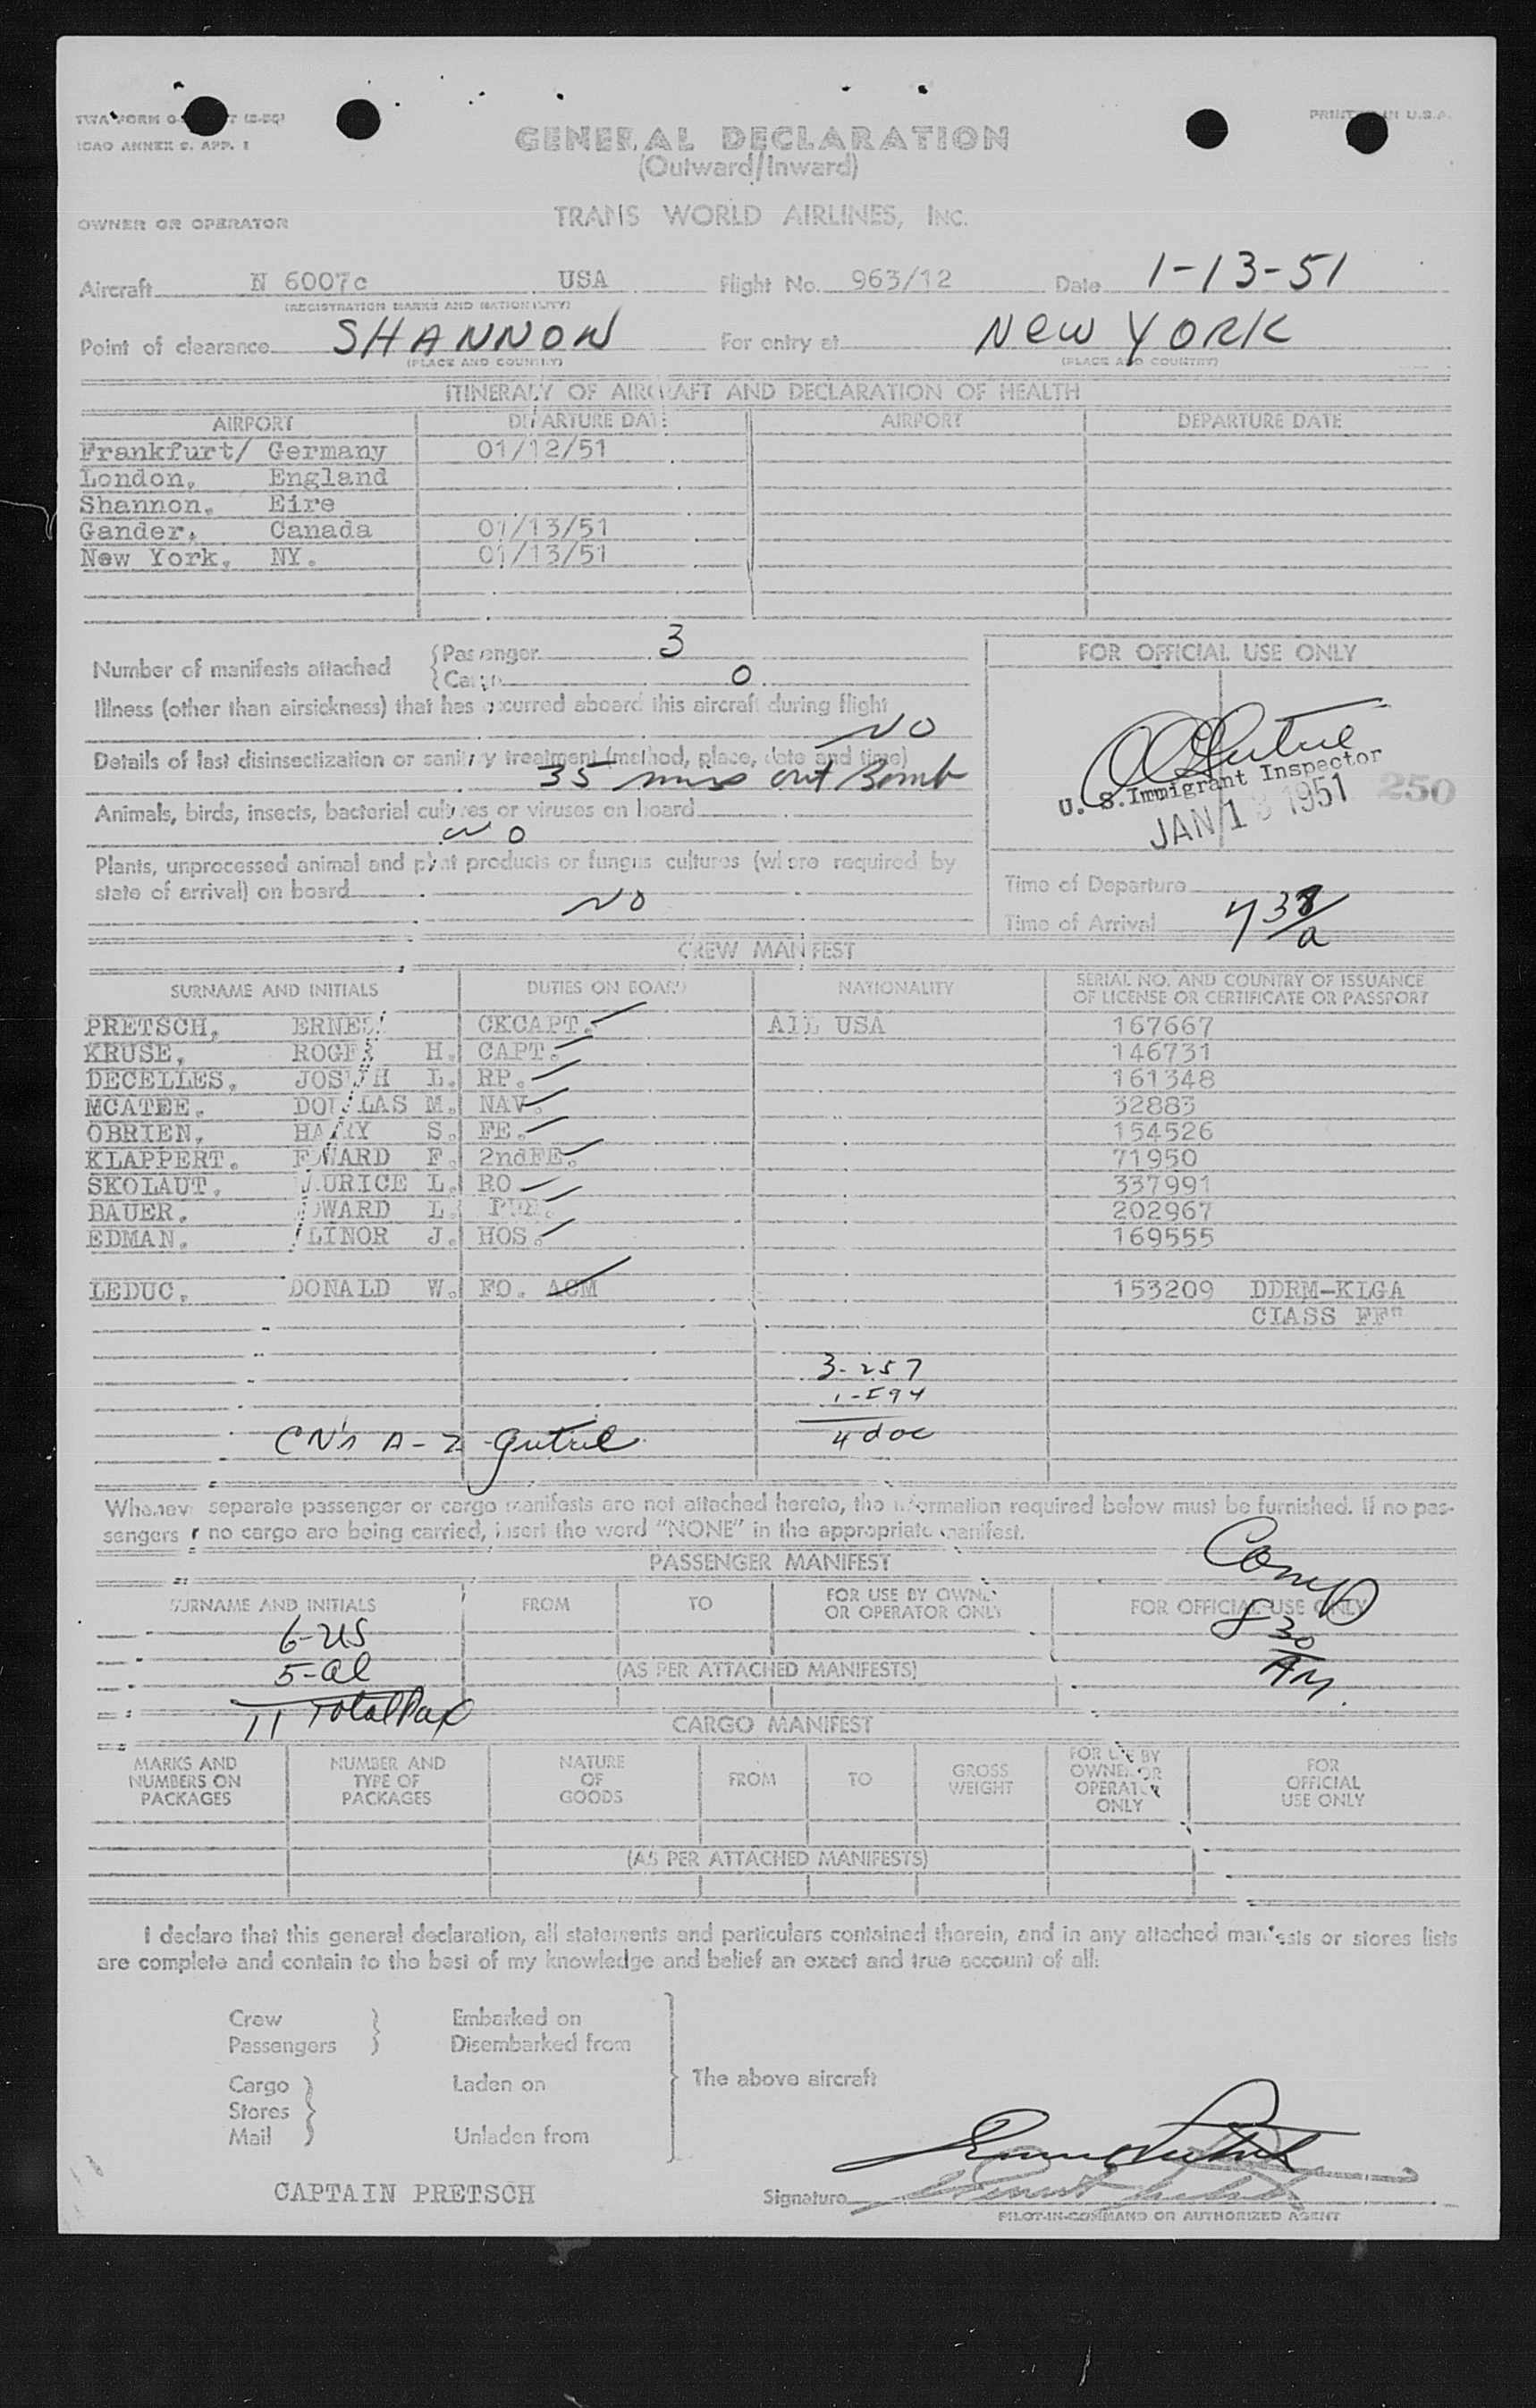 TWA FORM
PRINTED IN U.S.A.
ICAO ANNEX 9, APP. 1
GENERAL DECLARATION
(Outward/Inward)
OWNER OR OPERATOR TRANS WORLD AIRLINES, INC.
Aircraft N 6007c USA Flight No. 963/12 Date 1-13-51
(REGISTRATION MARKS AND NATIONALITY)
Point of clearance SHANNON For entry at New YORK
(PLACE AND COUNTRY) (PLACE AND COUNTRY)
ITINERARY OF AIRCRAFT AND DECLARATION OF HEALTH
AIRPORT DEPARTURE DATE AIRPORT DEPARTURE DATE
Frankfurt/ Germany 01/12/51
London, England
Shannon, Eire
Gander, Canada 01/13/51
New York, NY. 01/13/51
Number of manifests attached
Passenger 3
Cargo 0
FOR OFFICIAL USE ONLY
Illness (other than airsickness) that has occurred aboard this aircraft during flight
NO
Details of last disinsectization or sanitary treatment (method, place, date and time)
35 mins out Bomb
U. S. Immigrant Inspector
250
JAN 13 1951
Animals, birds, insects, bacterial cultures or viruses on board
NO
Plants, unprocessed animal and plant products or fungus cultures (where required by
state of arrival) on board
NO
Time of Departure
Time of Arrival 738/a
CREW MANIFEST
SURNAME AND INITIALS DUTIES ON BOARD NATIONALITY SERIAL NO. AND COUNTRY OF ISSUANCE
OF LICENSE OR CERTIFICATE OR PASSPORT
PRETSCH, ERNEST CKCAPT. ALL USA 167667
KRUSE, ROGER H. CAPT. 146731
DECELLES, JOSEPH L. RP. 161348
MCATEE. DOUGLAS M. NAV. 32883
OBRIEN, HARRY S. FE. 154526
KLAPPERT. EDWARD F. 2ndFE. 71950
SKOLAUT. MAURICE L. RO 337991
BAUER. EDWARD L. PUR. 202967
EDMAN. ELINOR J. HOS. 169555
LEDUC, DONALD W. FO. ACM 153209 DDRM-KLGA
CLASS
3-257
1-594
4 doc
CN's A-2 Gutrie
Whenever separate passenger or cargo manifests are not attached hereto, the information required below must be furnished. If no pas-
sengers or no cargo are being carried, insert the word "NONE" in the appropriate manifest.
PASSENGER MANIFEST
Comp
SURNAME AND INITIALS FROM TO FOR USE BY OWNER
OR OPERATOR ONLY FOR OFFICIAL USE ONLY
6-US
8 30
AM.
5-al
(AS PER ATTACHED MANIFESTS)
11 Total Pax
CARGO MANIFEST
MARKS AND
NUMBERS ON
PACKAGES
NUMBER AND
TYPE OF
PACKAGES
NATURE
OF
GOODS
FROM
TO
GROSS
WEIGHT
FOR USE BY
OWNER OR
OPERATOR
ONLY
FOR
OFFICIAL
USE ONLY
(AS PER ATTACHED MANIFESTS)
I declare that this general declaration, all statements and particulars contained therein, and in any attached manifests or stores lists
are complete and contain to the best of my knowledge and belief an exact and true account of all:
Crew Embarked on
Passengers Disembarked from
Cargo Laden on The above aircraft
Stores
Mail Unladen from
CAPTAIN PRETSCH Signature
PILOT-IN-COMMAND OR AUTHORIZED AGENT